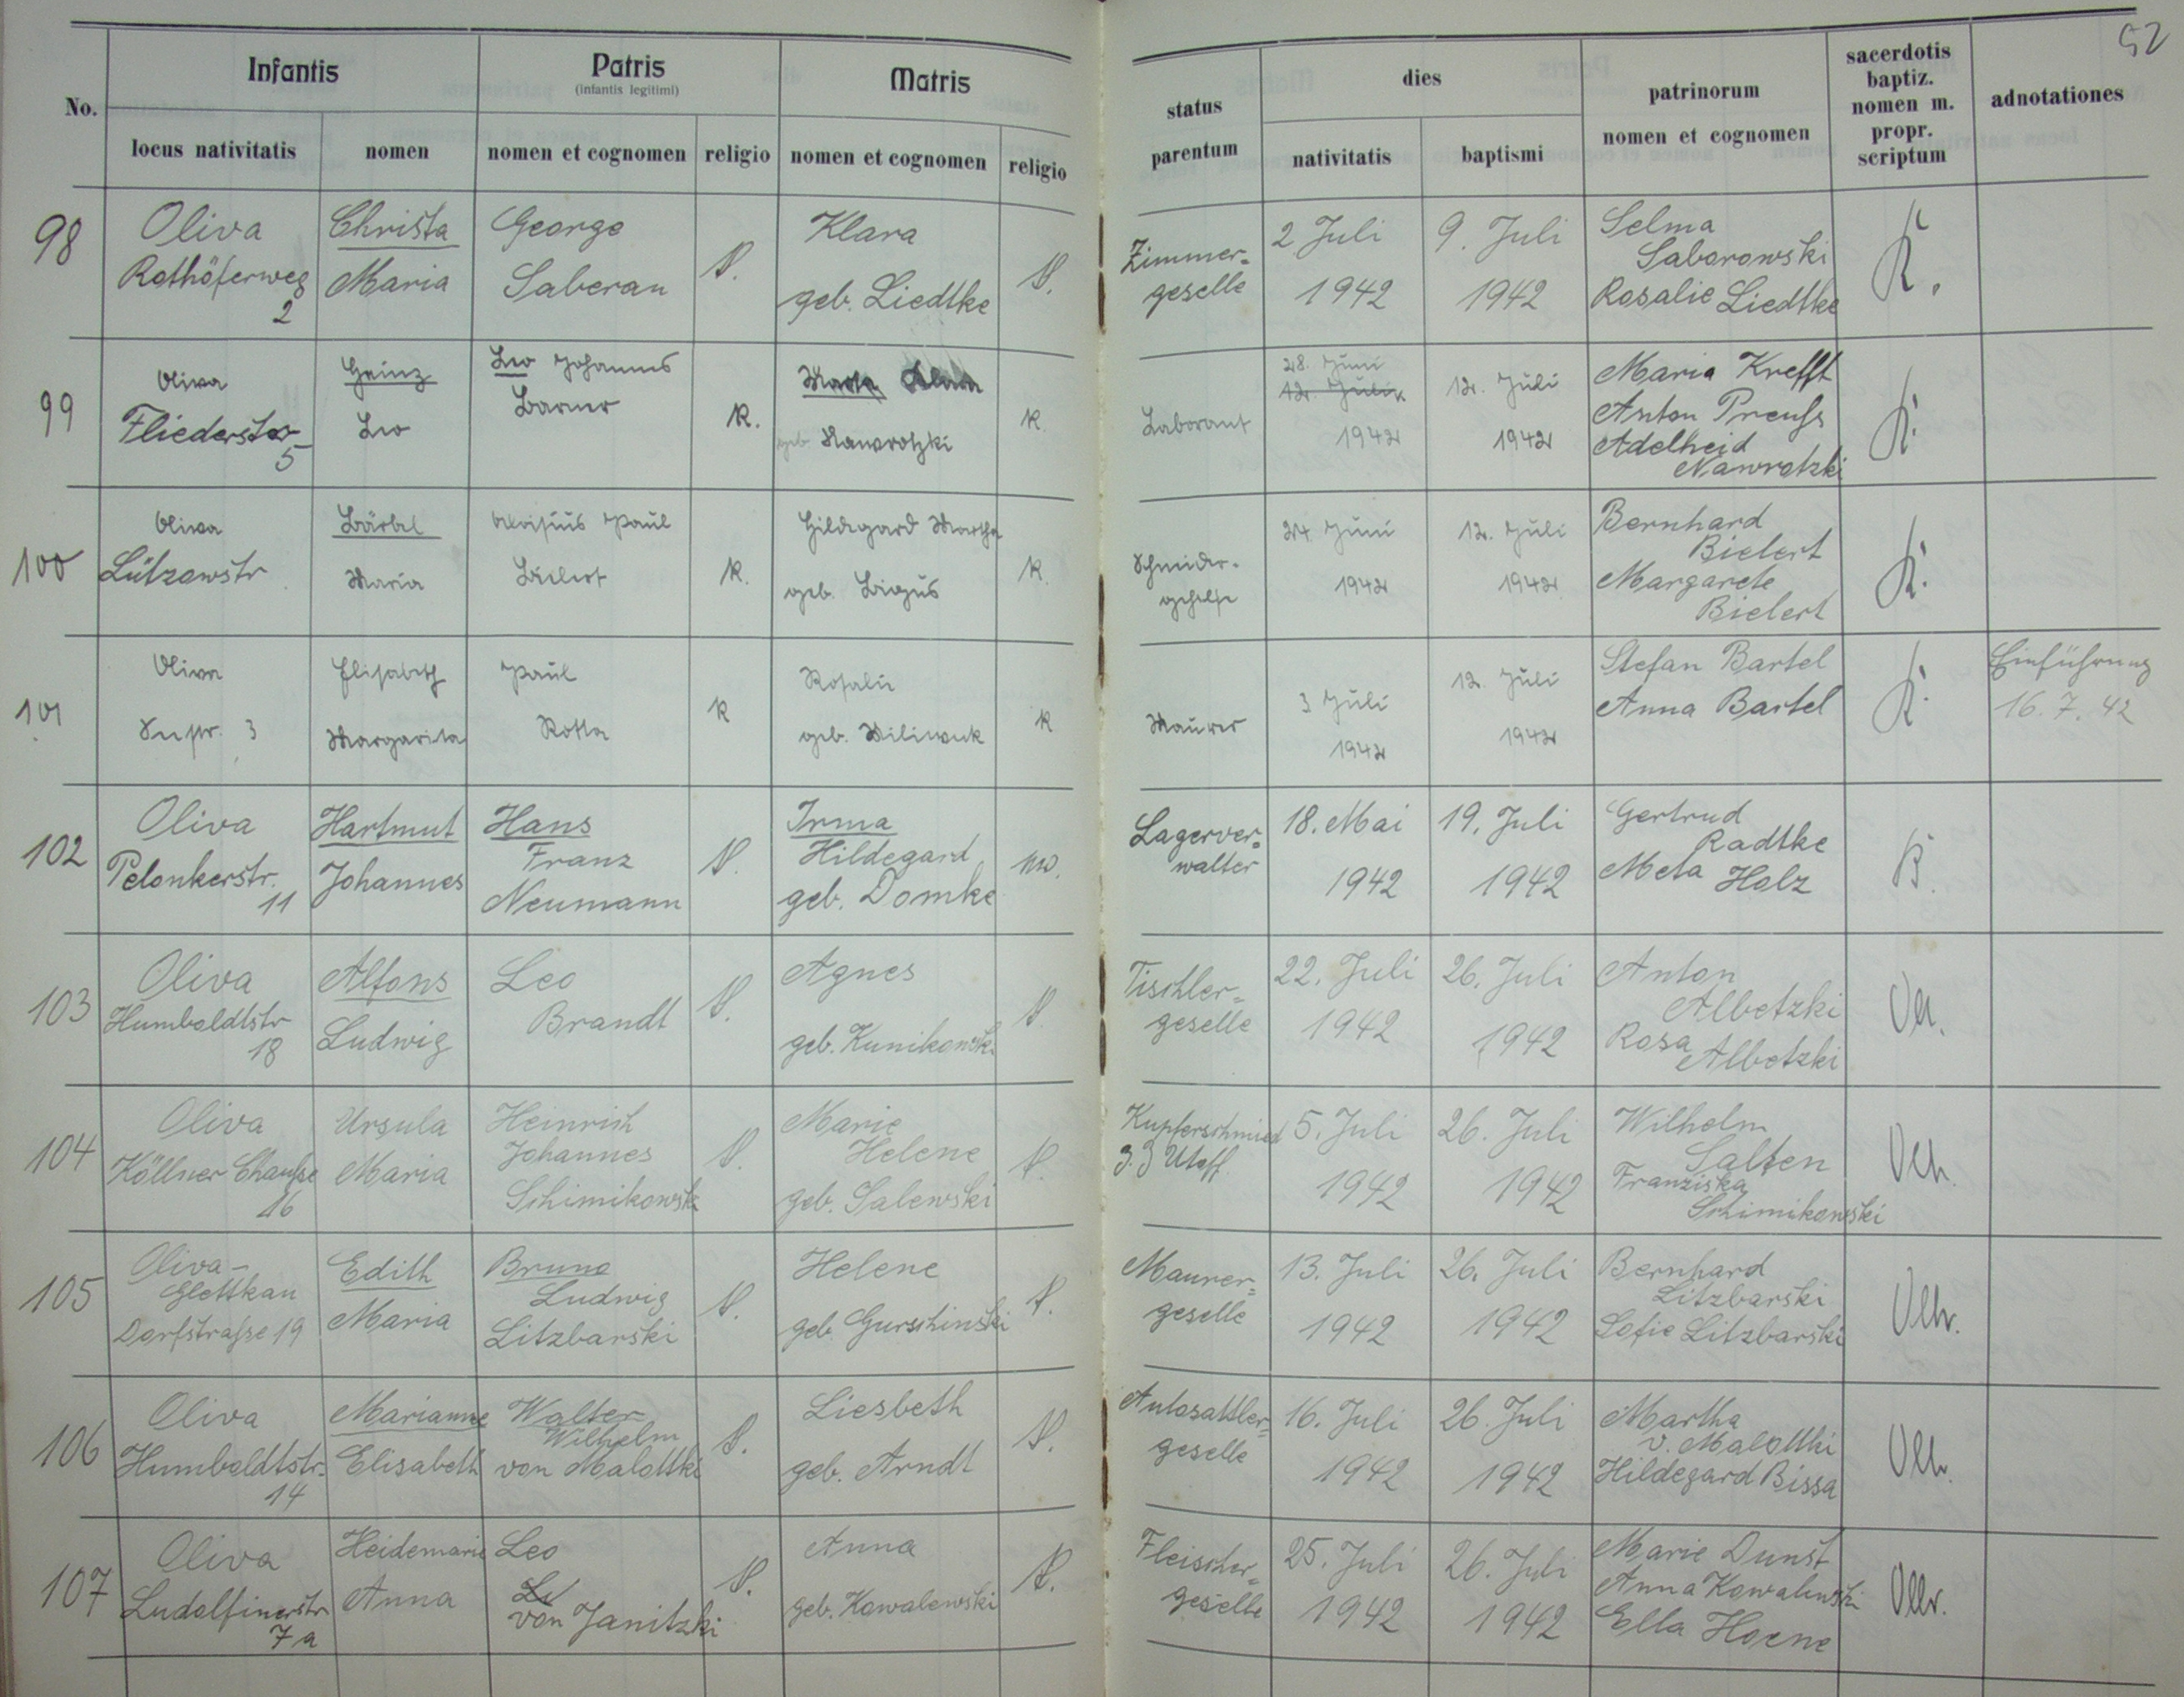 52
Infantis
Patris
(infantis legitimi)
Matris
No.
locus nativitatis
nomen
nomen et cognomen
religio
nomen et cognomen
religio
status
parentum
dies
nativitatis
baptismi
patrinorum
nomen et cognomen
sacerdotis
baptiz.
nomen m.
propr.
scriptum
adnotationes
98
Oliva
Rothöferweg
2
Christa
Maria
George
Saberau
Klara
geb. Liedtke
Zimmer=
geselle
2 Juli
1942
9. Juli
1942
Selma
Saborowski
Rosalie Liedtke
K.
99
Oliva
Fliederstr
5
Heinz
Leo
Leo Johannes
Barner
K.
Marta
geb. Nawrotzki
K.
Laborant
28. Juni
12. Juli
1942
12. Juli
1942
Maria Krefft
Anton Preuß
Adelheid
Nawrotzki
K.
100
Oliva
Lützowstr
Bärbel
Maria
Aloisius Paul
Bielert
K.
Hildegard Martha
geb. Bigus
K.
Schneider-
gehilfe
24 Juni
1942
12. Juli
1942
Bernhard
Bielert
Margarete
Bielert
K.
101
Oliva
Seestr. 3
Elisabeth
Margarita
Paul
Rotta
K
Rosalie
geb. Wiliwuk
K
Maurer
3 Juli
1942
12. Juli
1942
Stefan Bartel
Anna Bartel
K.
Einführung
16.7.42
102
Oliva
Pelonkerstr.
11
Hartmut
Johannes
Hans
Franz
Neumann
Irma
Hildegard
geb. Domke
Lagerver=
walter
18. Mai
1942
19. Juli
1942
Gertrud
Radtke
Meta Holz
B.
103
Oliva
Humboldtstr
18
Alfons
Ludwig
Leo
Brandt
Agnes
geb. Kunikowski
Tischler=
geselle
22. Juli
1942
26. Juli
1942
Anton
Albetzki
Rosa
Albetzki
104
Oliva
Köllner Chaußee
16
Ursula
Maria
Heinrich
Johannes
Schimikowski
Marie
Helene
geb. Salewski
Kupferschmied
z.Z Utoff.
5. Juli
1942
26. Juli
1942
Wilhelm
Salten
Franziska
Schimikowski
105
Oliva-
Glettkau
Dorfstraße 19
Edith
Maria
Bruno
Ludwig
Litzbarski
Helene
geb. Gurschinski
Maurer=
geselle
13. Juli
1942
26. Juli
1942
Bernhard
Litzbarski
Sofie Litzbarski
106
Oliva
Humboldtstr.
14
Marianne
Elisabeth
Walter
Wilhelm
von Malottki
Liesbeth
geb. Arndt
Autosattler=
geselle
16. Juli
1942
26. Juli
1942
Martha
v. Malottki
Hildegard Bissa
107
Oliva
Ludolfinerstr
7a
Heidemarie
Anna
Leo
von Janitzki
Anna
geb. Kowalewski
Fleischer=
geselle
25. Juli
1942
26. Juli
1942
Marie Dunst
Anna Kowalewski
Ella Hoene